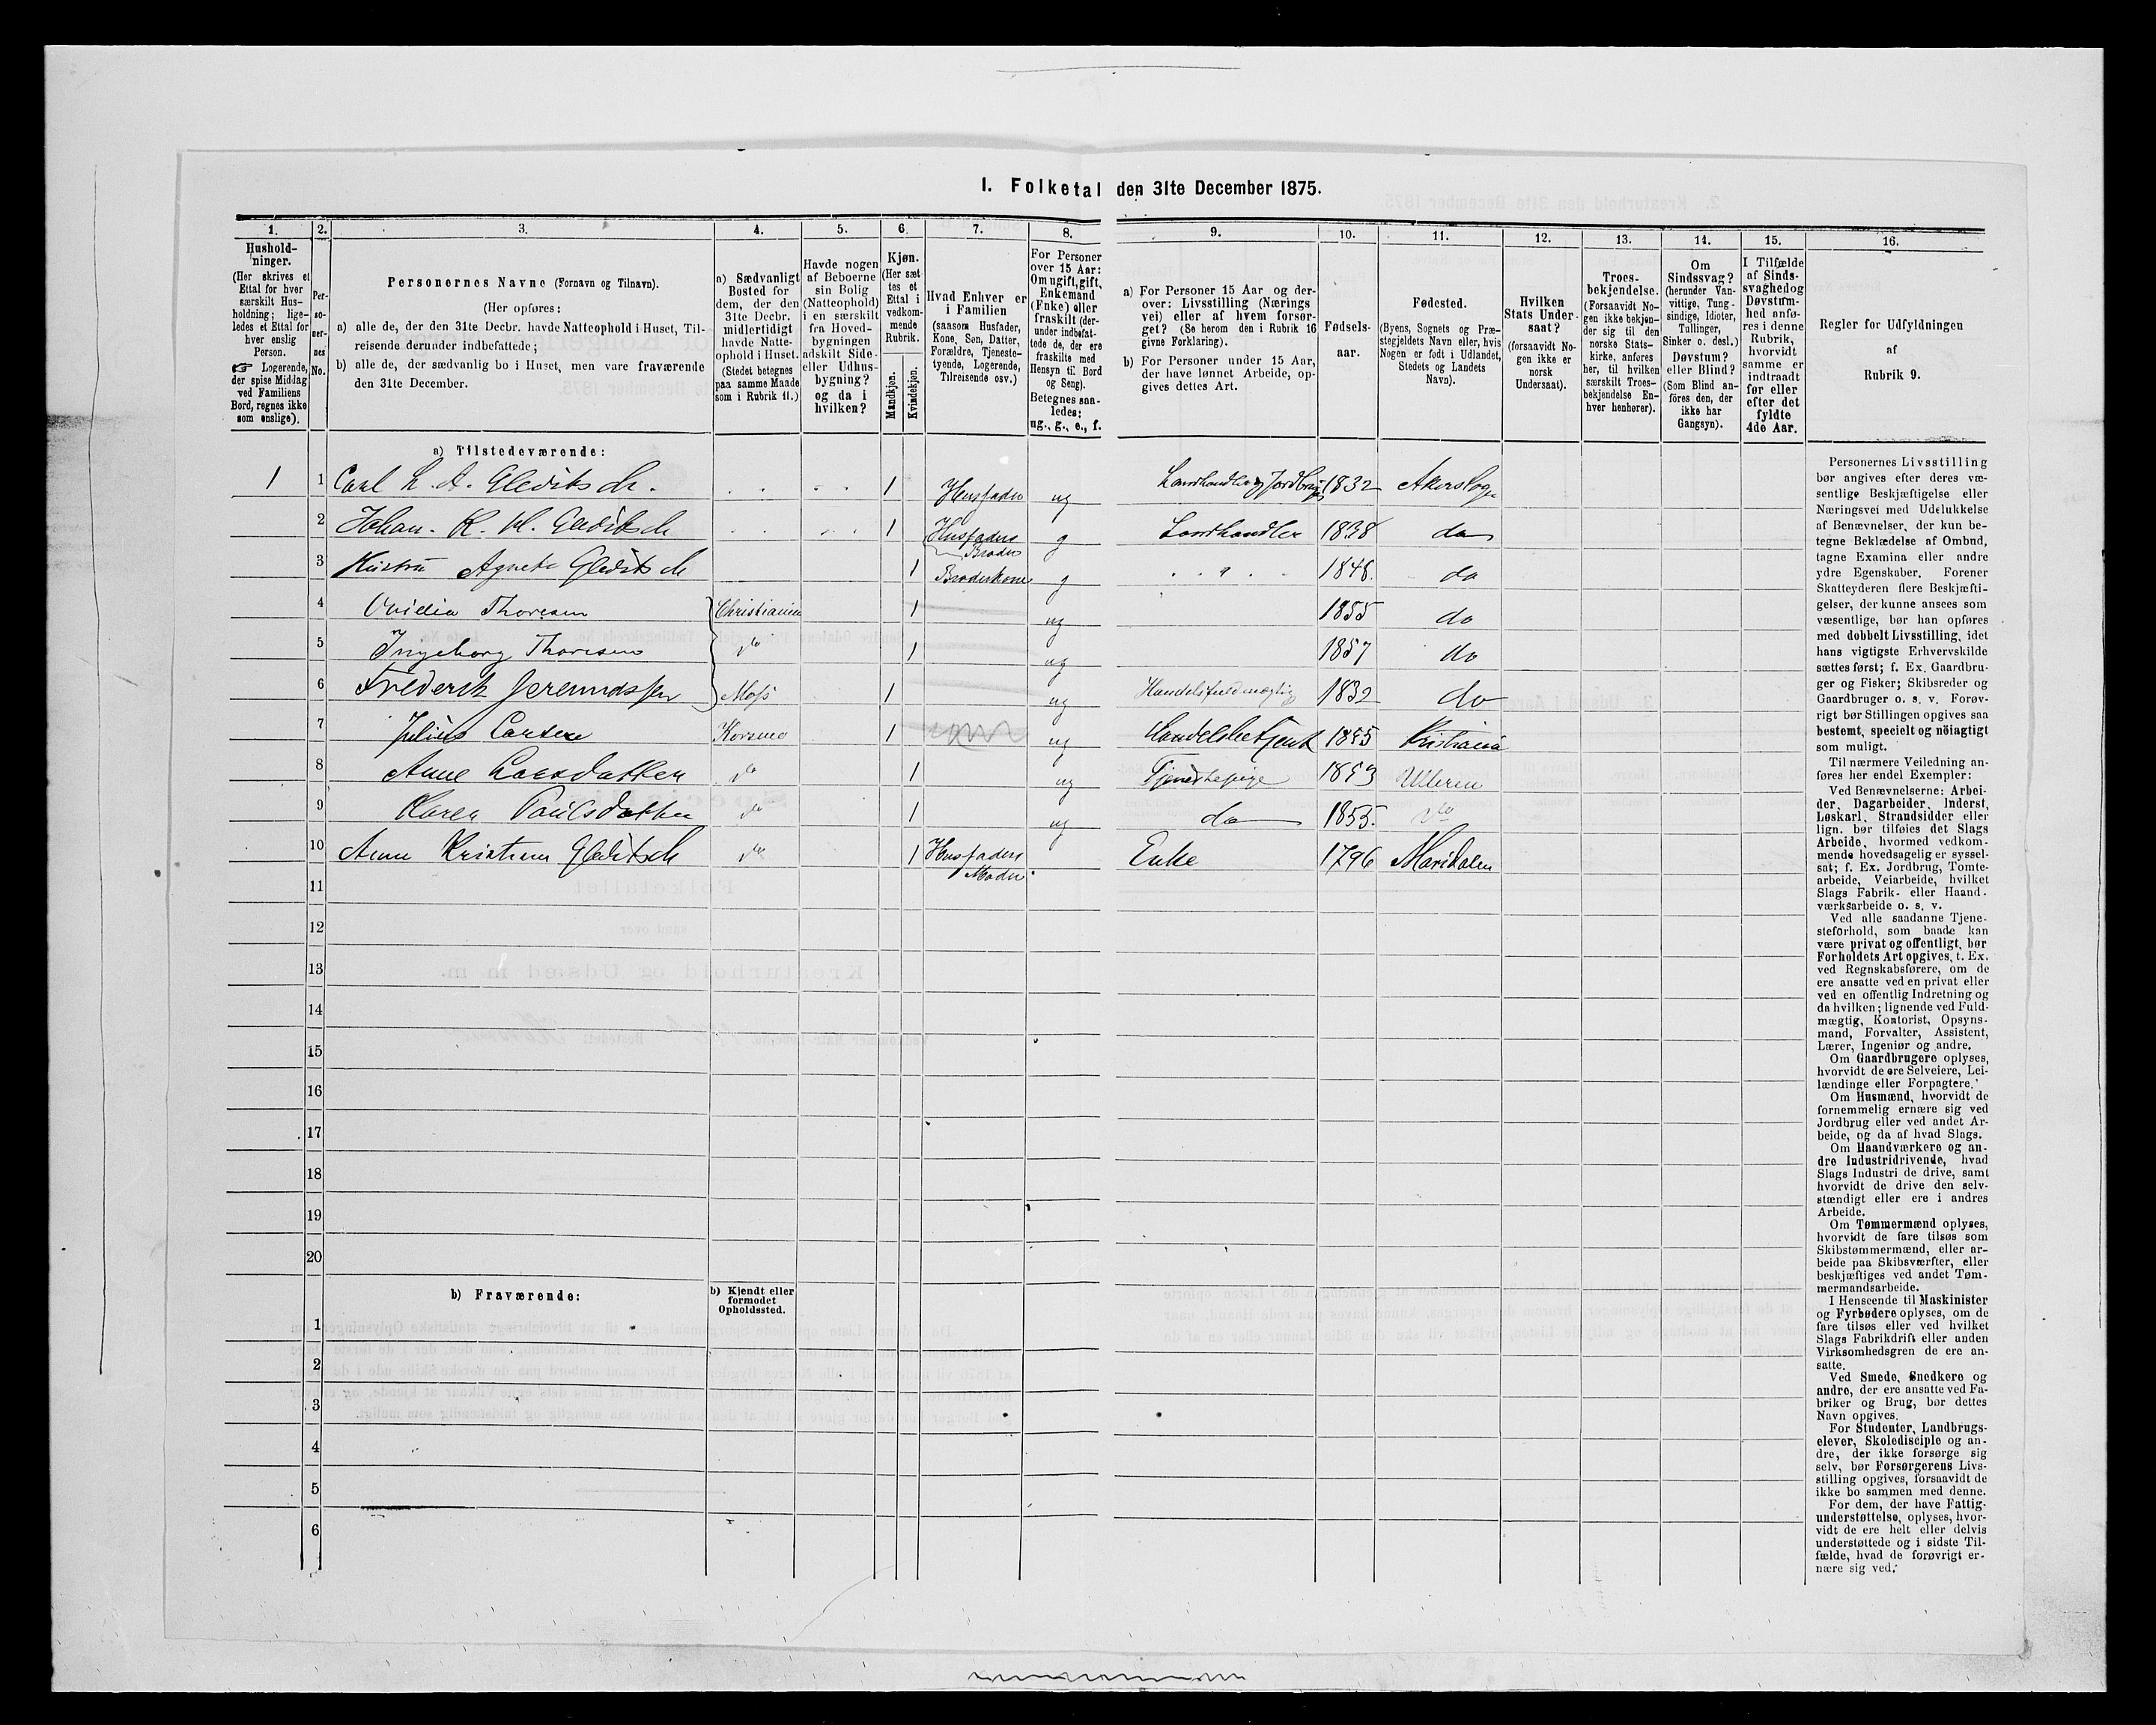 I. Folketal den 31te December 1875.
1.
Hushold-
ninger.
(Her skrives et
Ettal for hver
særskilt Hus-
holdning; lige-
ledes et Ettal for
hver enslig
Person.
☞ Logerende,
der spise Middag
ved Familiens
Bord, regnes ikke
som enslige).
2.
Per-
so-
ner-
nes
No.
3.
Personernes Navne (Fornavn og Tilnavn).
(Her opføres:
a) alle de, der den 31te Decbr. havde Natteophold i Huset, Til-
reisende derunder indbefattede;
b) alle de, der sædvanlig bo i Huset, men vare fraværende
den 31te December.
4.
a) Sædvanligt
Bosted for
dem, der den
31te Decbr.
midlertidigt
havde Natte-
ophold i Huset.
(Stedet betegnes
paa samme Maade
som i Rubrik 11.)
5.
Havde nogen
af Beboerne
sin Bolig
(Natteophold)
i en særskilt
fra Hoved-
bygningen
adskilt Side-
eller Udhus-
bygning?
og da i
hvilken?
6.
Kjøn.
(Her sæt
tes et
Ettal i
vedkom-
mende
Rubrik.
Mandkjøn.
Kvindekjøn.
7.
Hvad Enhver er
i Familien
(saasom Husfader,
Kone, Søn, Datter,
Forældre, Tjeneste-
tyende, Logerende,
Tilreisende osv.)
8.
For Personer
over 15 Aar:
Om ugift, gift,
Enkemand
(Enke) eller
fraskilt (der-
under indbefat-
tede de, der ere
fraskilte med
Hensyn til Bord
og Seng).
Betegnes saa-
ledes:
ug., g., e., f.
9.
a) For Personer 15 Aar og der-
over: Livsstilling (Nærings
vei) eller af hvem forsør-
get? (Se herom den i Rubrik 16
givne Forklaring).
b) For Personer under 15 Aar,
der have lønnet Arbeide, op-
gives dettes Art.
10.
Fødsels-
aar.
11.
Fødested.
(Byens, Sognets og Præ-
stegjeldets Navn eller, hvis
Nogen er født i Udlandet,
Stedets og Landets
Navn).
12.
Hvilken
Stats Under-
saat?
(forsaavidt No-
gen ikke er
norsk
Undersaat).
13.
Troes-
bekjendelse.
(Forsaavidt No-
gen ikke bekjen-
der sig til den
norske Stats-
kirke, anføres
her, til hvilken
særskilt Troes-
bekjendelse En-
hver henhører).
14.
Om
Sindssvag?
(herunder Van-
vittige, Tung-
sindige, Idioter,
Tullinger,
Sinker o. desl.)
Døvstum?
eller Blind?
(Som Blind an-
føres den, der
ikke har
Gangsyn).
15.
I Tilfælde
af Sinds-
svaghed og
Døvstum-
hed anfø-
res i denne
Rubrik,
hvorvidt
samme er
indtraadt
før eller
efter det
fyldte
4de Aar.
16.
Regler for Udfyldningen
af
Rubrik 9.
a) Tilstedeværende:
1 1 Carl L. A. Gleditsch. 1 Husfader ug Landhandler og Jordbruger 1832 Akers Sogn
2 Johan. K. W. Gleditsch 1 Husfaders Broder g Landhandler 1838 do
3 Hustru Agnete Gleditsch 1 Broderkone g 1848. do
4 Ovidia Thoresen Christiania 1 ug 1855 do
5 Ingeborg Thoresen do 1 ug 1857 do
6 Frederik Jeremiassen Moss 1 ug Handelsfuldmægtig 1832 do
7 Julius Carsen Korsmo 1 ug Handelsbetjent 1855 Kristiania
8 Anne Larsdatter do 1 ug Tjenestepige 1853 Ulleren
9 Karen Paulsdatter do 1 ug do 1855. do
10 Anne Kristine Gleditsch do 1 Husfaders Moder Enke 1796 Maridalen
11
12
13
14
15
16
17
18
19
20
b) Fraværende:
b) Kjendt eller
formodet
Opholdssted.
1
2
3
4
5
6
Personernes Livsstilling
bør angives efter deres væ-
sentlige Beskjæftigelse eller
Næringsvei med Udelukkelse
af Benævnelser, der kun be-
tegne Beklædelse af Ombud,
tagne Examina eller andre
ydre Egenskaber. Forener
Skatteyderen flere Beskjæfti-
gelser, der kunne ansees som
væsentlige, bør han opføres
med dobbelt Livsstilling, idet
hans vigtigste Erhvervskilde
sættes først; f. Ex. Gaardbru-
ger og Fisker; Skibsreder og
Gaardbruger o. s. v. Forøv-
rigt bør Stillingen opgives saa
bestemt, specielt og nöiagtigt
som muligt.
Til nærmere Veiledning an-
føres her endel Exempler:
Ved Benævnelserne: Arbei-
der, Dagarbeider, Inderst,
Løskarl, Strandsidder eller
lign. bør tilføies det Slags
Arbeide, hvormed vedkom-
mende hovedsagelig er syssel-
sat; f. Ex. Jordbrug, Tomte-
arbeide, Veiarbeide, hvilket
Slags Fabrik- eller Haand-
værksarbeide o. s. v.
Ved alle saadanne Tjene-
steforhold, som baade kan
være privat og offentligt, bør
Forholdets Art opgives, t. Ex.
ved Regnskabsførere, om de
ere ansatte ved en privat eller
ved en offentlig Indretning og
da hvilken; lignende ved Fuld-
mægtig, Kontorist, Opsyns-
mand, Forvalter, Assistent,
Lærer, Ingeniør og andre.
Om Gaardbrugere oplyses,
hvorvidt de ere Selveiere, Lei-
lændinge eller Forpagtere.
Om Husmænd, hvorvidt de
fornemmelig ernære sig ved
Jordbrug eller ved andet Ar-
beide, og da af hvad Slags.
Om Haandværkere og an-
dre Industridrivende, hvad
Slags Industri de drive, samt
hvorvidt de drive den selv-
stændigt eller ere i andres
Arbeide.
Om Tømmermænd oplyses,
hvorvidt de fare tilsøs som
Skibstømmermænd, eller ar-
beide paa Skibsværfter, eller
beskjæftiges ved andet Tøm-
mermandsarbeide.
I Henseende til Maskinister
og Fyrbødere oplyses, om de
fare tilsøs eller ved hvilket
Slags Fabrikdrift eller anden
Virksomhedsgren de ere an-
satte.
Ved Smede, Snedkere og
andre, der ere ansatte ved Fa-
briker og Brug, bør dettes
Navn opgives.
For Studenter, Landbrugs-
elever, Skoledisciple og an-
dre, der ikke forsørge sig
selv, bør Forsørgerens Livs-
stilling opgives, forsaavidt de
ikke bo sammen med denne.
For dem, der have Fattig-
understøttelse, oplyses, hvor-
vidt de ere helt eller delvis
understøttede og i sidste Til-
fælde, hvad de forøvrigt er-
nære sig ved.